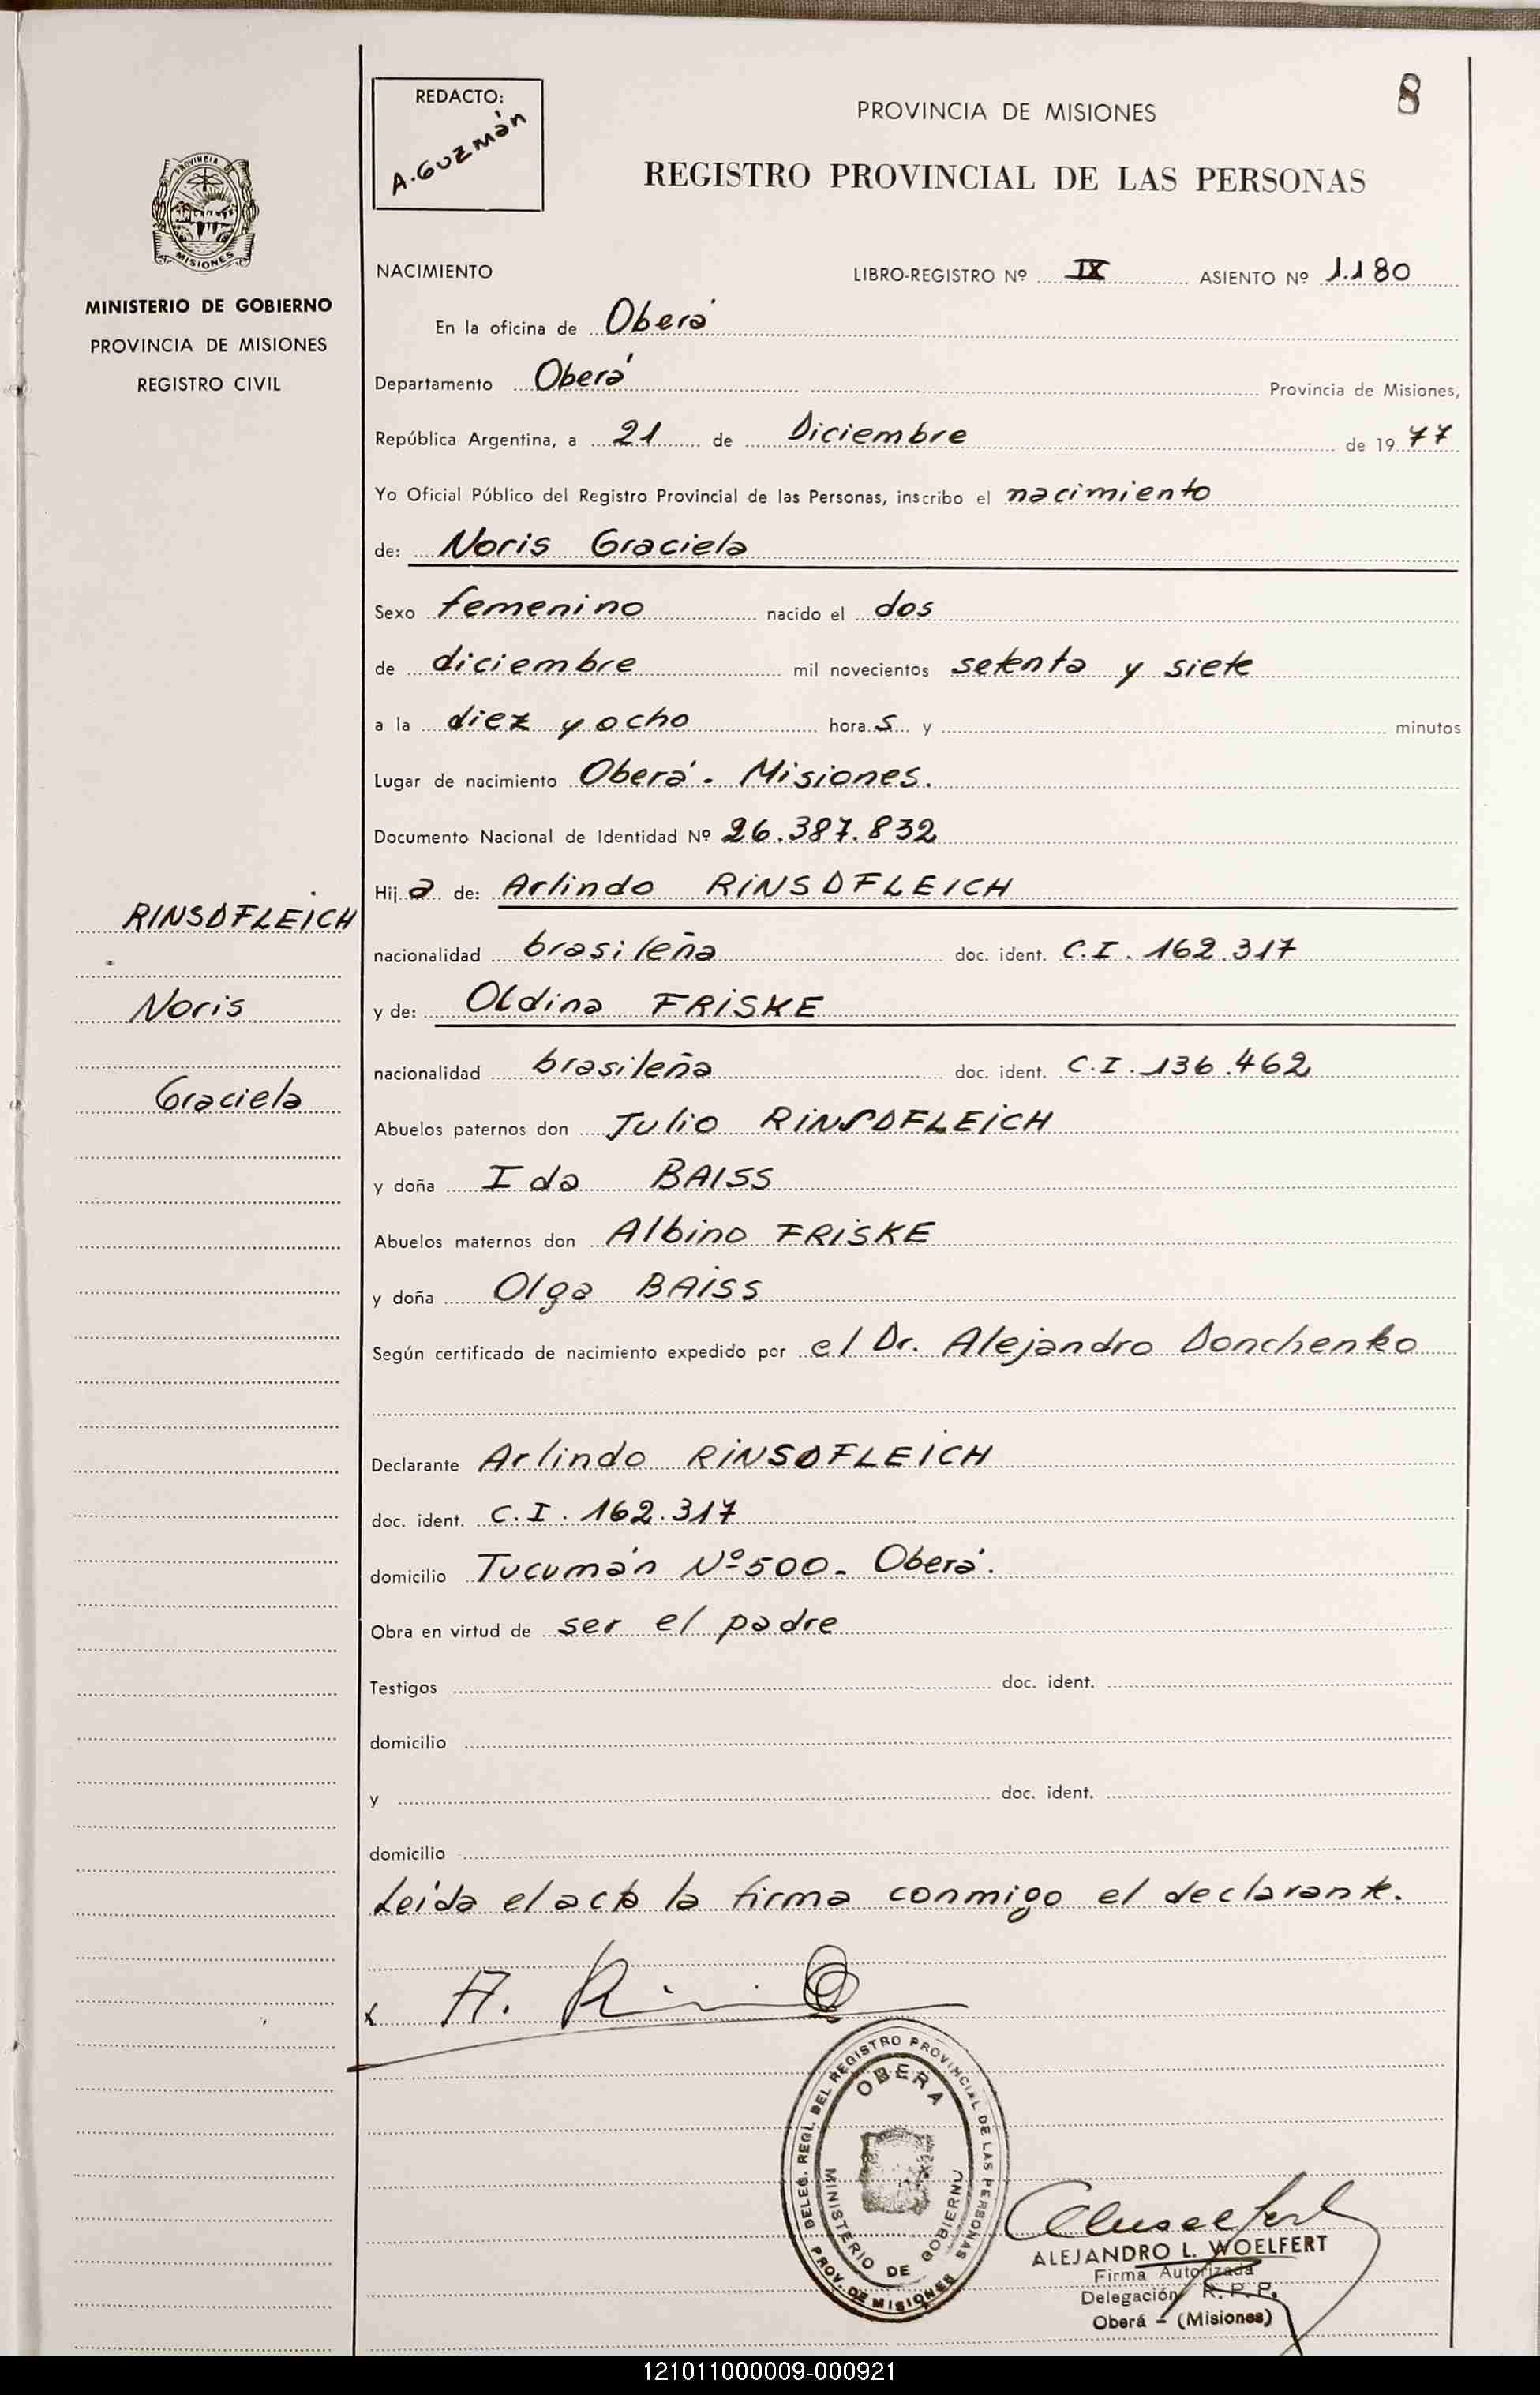 REDACTO:
A. Guzmán
8
PROVINCIA DE MISIONES
REGISTRO PROVINCIAL DE LAS PERSONAS
PROVINCIA DE
MISIONES
MINISTERIO DE GOBIERNO
PROVINCIA DE MISIONES
REGISTRO CIVIL
NACIMIENTO LIBRO-REGISTRO Nº IX ASIENTO Nº 1.180
En la oficina de Oberá
Departamento Oberá Provincia de Misiones,
República Argentina, a 21 de Diciembre de 1977
Yo Oficial Público del Registro Provincial de las Personas, inscribo el nacimiento
de: Noris Graciela
Sexo femenino nacido el dos
de diciembre mil novecientos setenta y siete
a la diez y ocho hora s y minutos
Lugar de nacimiento Oberá - Misiones.
Documento Nacional de Identidad Nº 26.387.832
Hij a de: Arlindo RINSDFLEICH
RINSDFLEICH
nacionalidad brasileña doc. ident. C.I. 162.317
Noris
y de: Oldina FRISKE
nacionalidad brasileña doc. ident. C.I. 136.462
Graciela
Abuelos paternos don Julio RINSDFLEICH
y doña Ida BAISS
Abuelos maternos don Albino FRISKE
y doña Olga BAISS
Según certificado de nacimiento expedido por el Dr. Alejandro Donchenko
Declarante Arlindo RINSDFLEICH
doc. ident. C.I. 162.317
domicilio Tucumán Nº 500 - Oberá.
Obra en virtud de ser el padre
Testigos doc. ident.
domicilio
y doc. ident.
domicilio
Leída el acta la firma conmigo el declarante.
x A.
DELEG. REGL. DEL REGISTRO PROVINCIAL DE LAS PERSONAS
OBERA
MINISTERIO DE GOBIERNO
PROV. DE MISIONES
ALEJANDRO L. WOELFERT
Firma Autorizada
Delegación R. P. P.
Oberá - (Misiones)
121011000009-000921